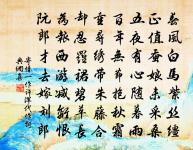 春風白馬紫絲繮
正值蠶娘未采桑
五夜有心隨暮雨
百年無節抱秋霜
重尋繡帶朱藤合
却忍羅裙碧草長
為報西游減離恨
阮郎才去嫁劉郎